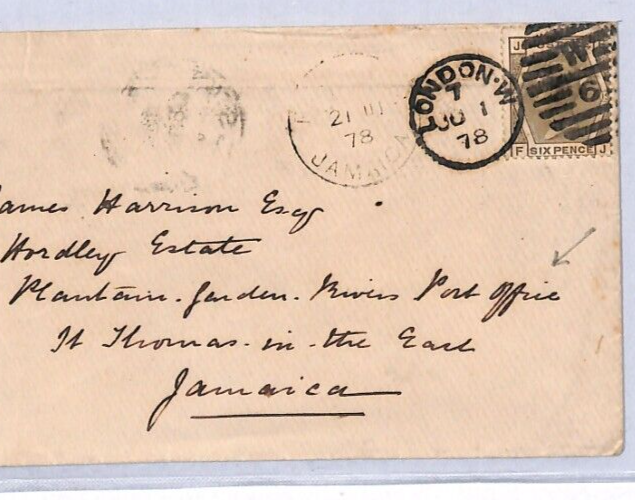 LONDON·W
7
JU 1
78
21
78
JAMAICA
W
6
F SIX PENCE J
James Harrison Esqr
Hordley Estate
Plantain. Garden. Rivers Post Office
St Thomas. in. the East
Jamaica